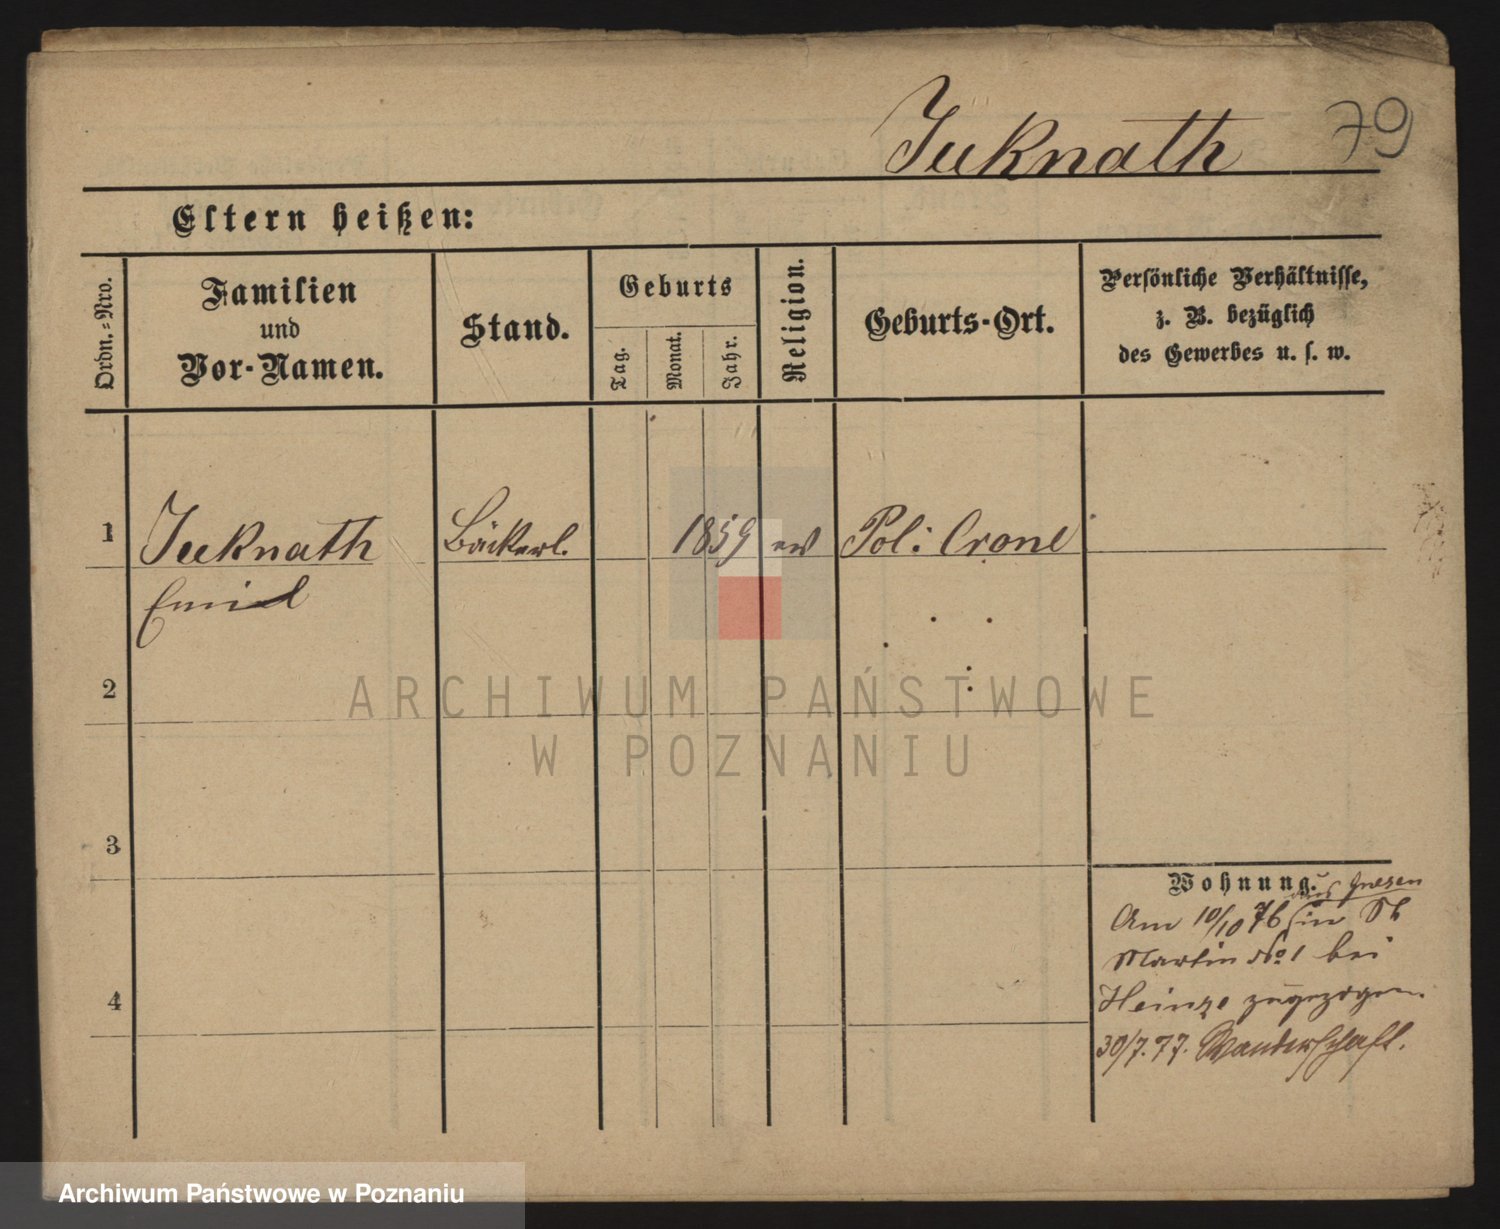 Jeeknath 79
Eltern heißen:
Ordn.=Nro.
Familien
und
Vor-Namen.
Stand.
Geburts
Tag.
Monat.
Jahr.
Religion.
Geburts-Ort.
Persönliche Verhältnisse,
z. B. bezüglich
des Gewerbes u. s. w.
1 Jeeknath Bäckerl. 1859 ev Pol: Crone
Emil
2
3
4
Wohnung.
aus Gnesen
Am 10/10 76 in St
Martin No 1 bei
Heinze zugezogen.
30/7.77. Wanderschaft.
ARCHIWUM PAŃSTWOWE
W POZNANIU
Archiwum Państwowe w Poznaniu